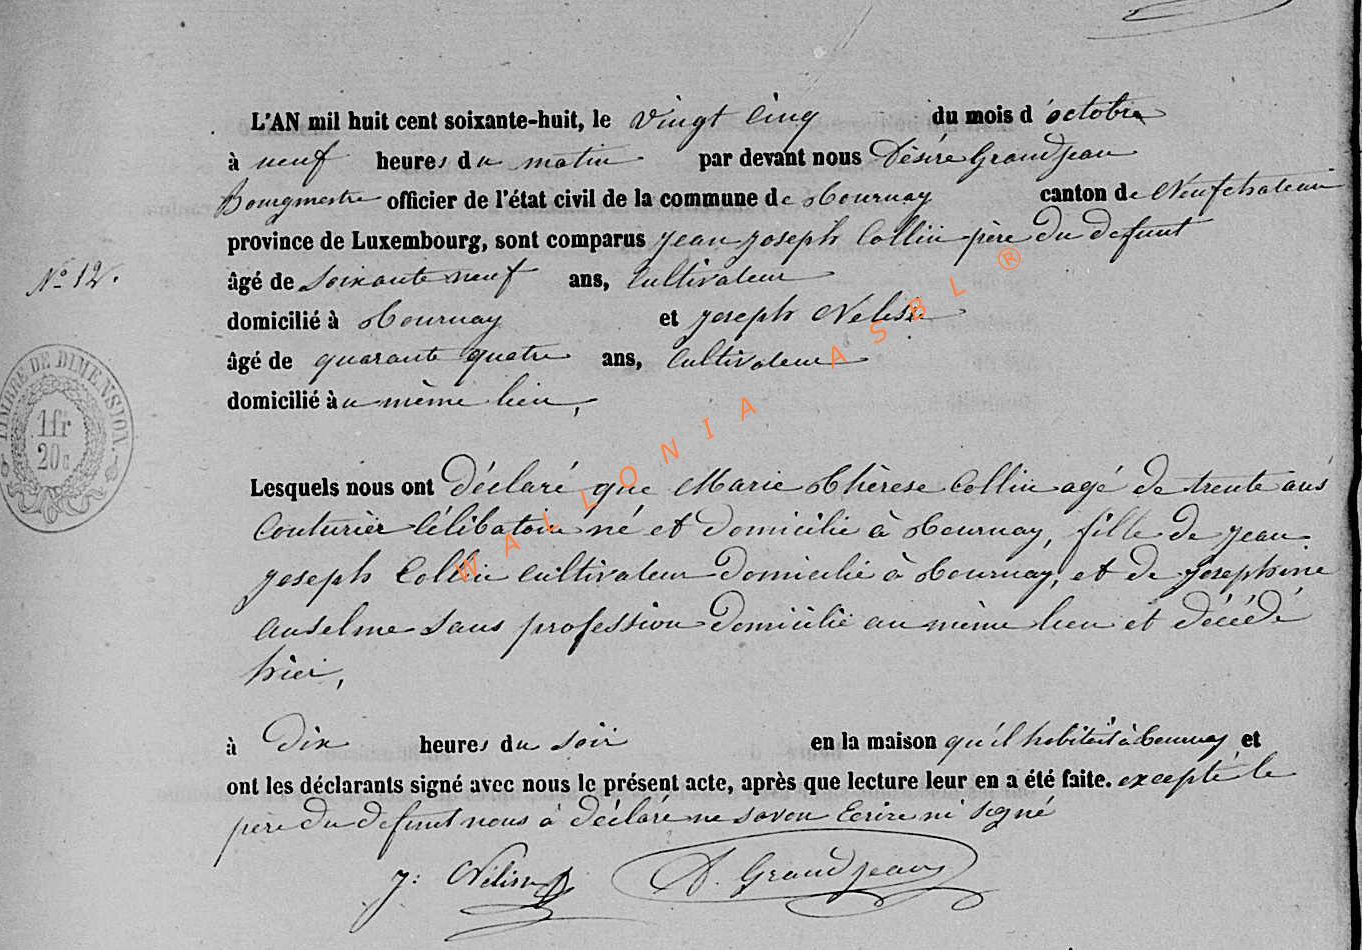 L'AN mil huit cent soixante-huit, le vingt cinq du mois d'octobre
à neuf heures du matin par devant nous Dèsiré Grandjean
Bourgmestre officier de l'état civil de la commune de Tournay canton de Neufchateau
province de Luxembourg, sont comparus Jean Joseph Collin père du defunt
âgé de soixante neuf ans, Cultivateur
N° 12.
domicilié à Tournay et Joseph Nelisse
âgé de quarante quatre ans, Cultivateur
domicilié au même lieu,
TIMBRE DE DIMENSION.
1fr
20c
Lesquels nous ont déclaré que Marie Thèrese Collin agé de trente ans
Couturier Célibataire né et domicilié à Tournay, fille de Jean
Joseph Collin cultivateur domicilié à Tournay, et de Josephine
Anselme sans profession domicilié au même lieu et décédé
hier,
à Dix heures du soir en la maison qu'il habitait à Tournay et
ont les déclarants signé avec nous le présent acte, après que lecture leur en a été faite. excepté le
père du defunt nous à déclaré ne savoir Ecrire ni signé
J: Nelisse D. Grandjean
WALLONIA ASBL ®